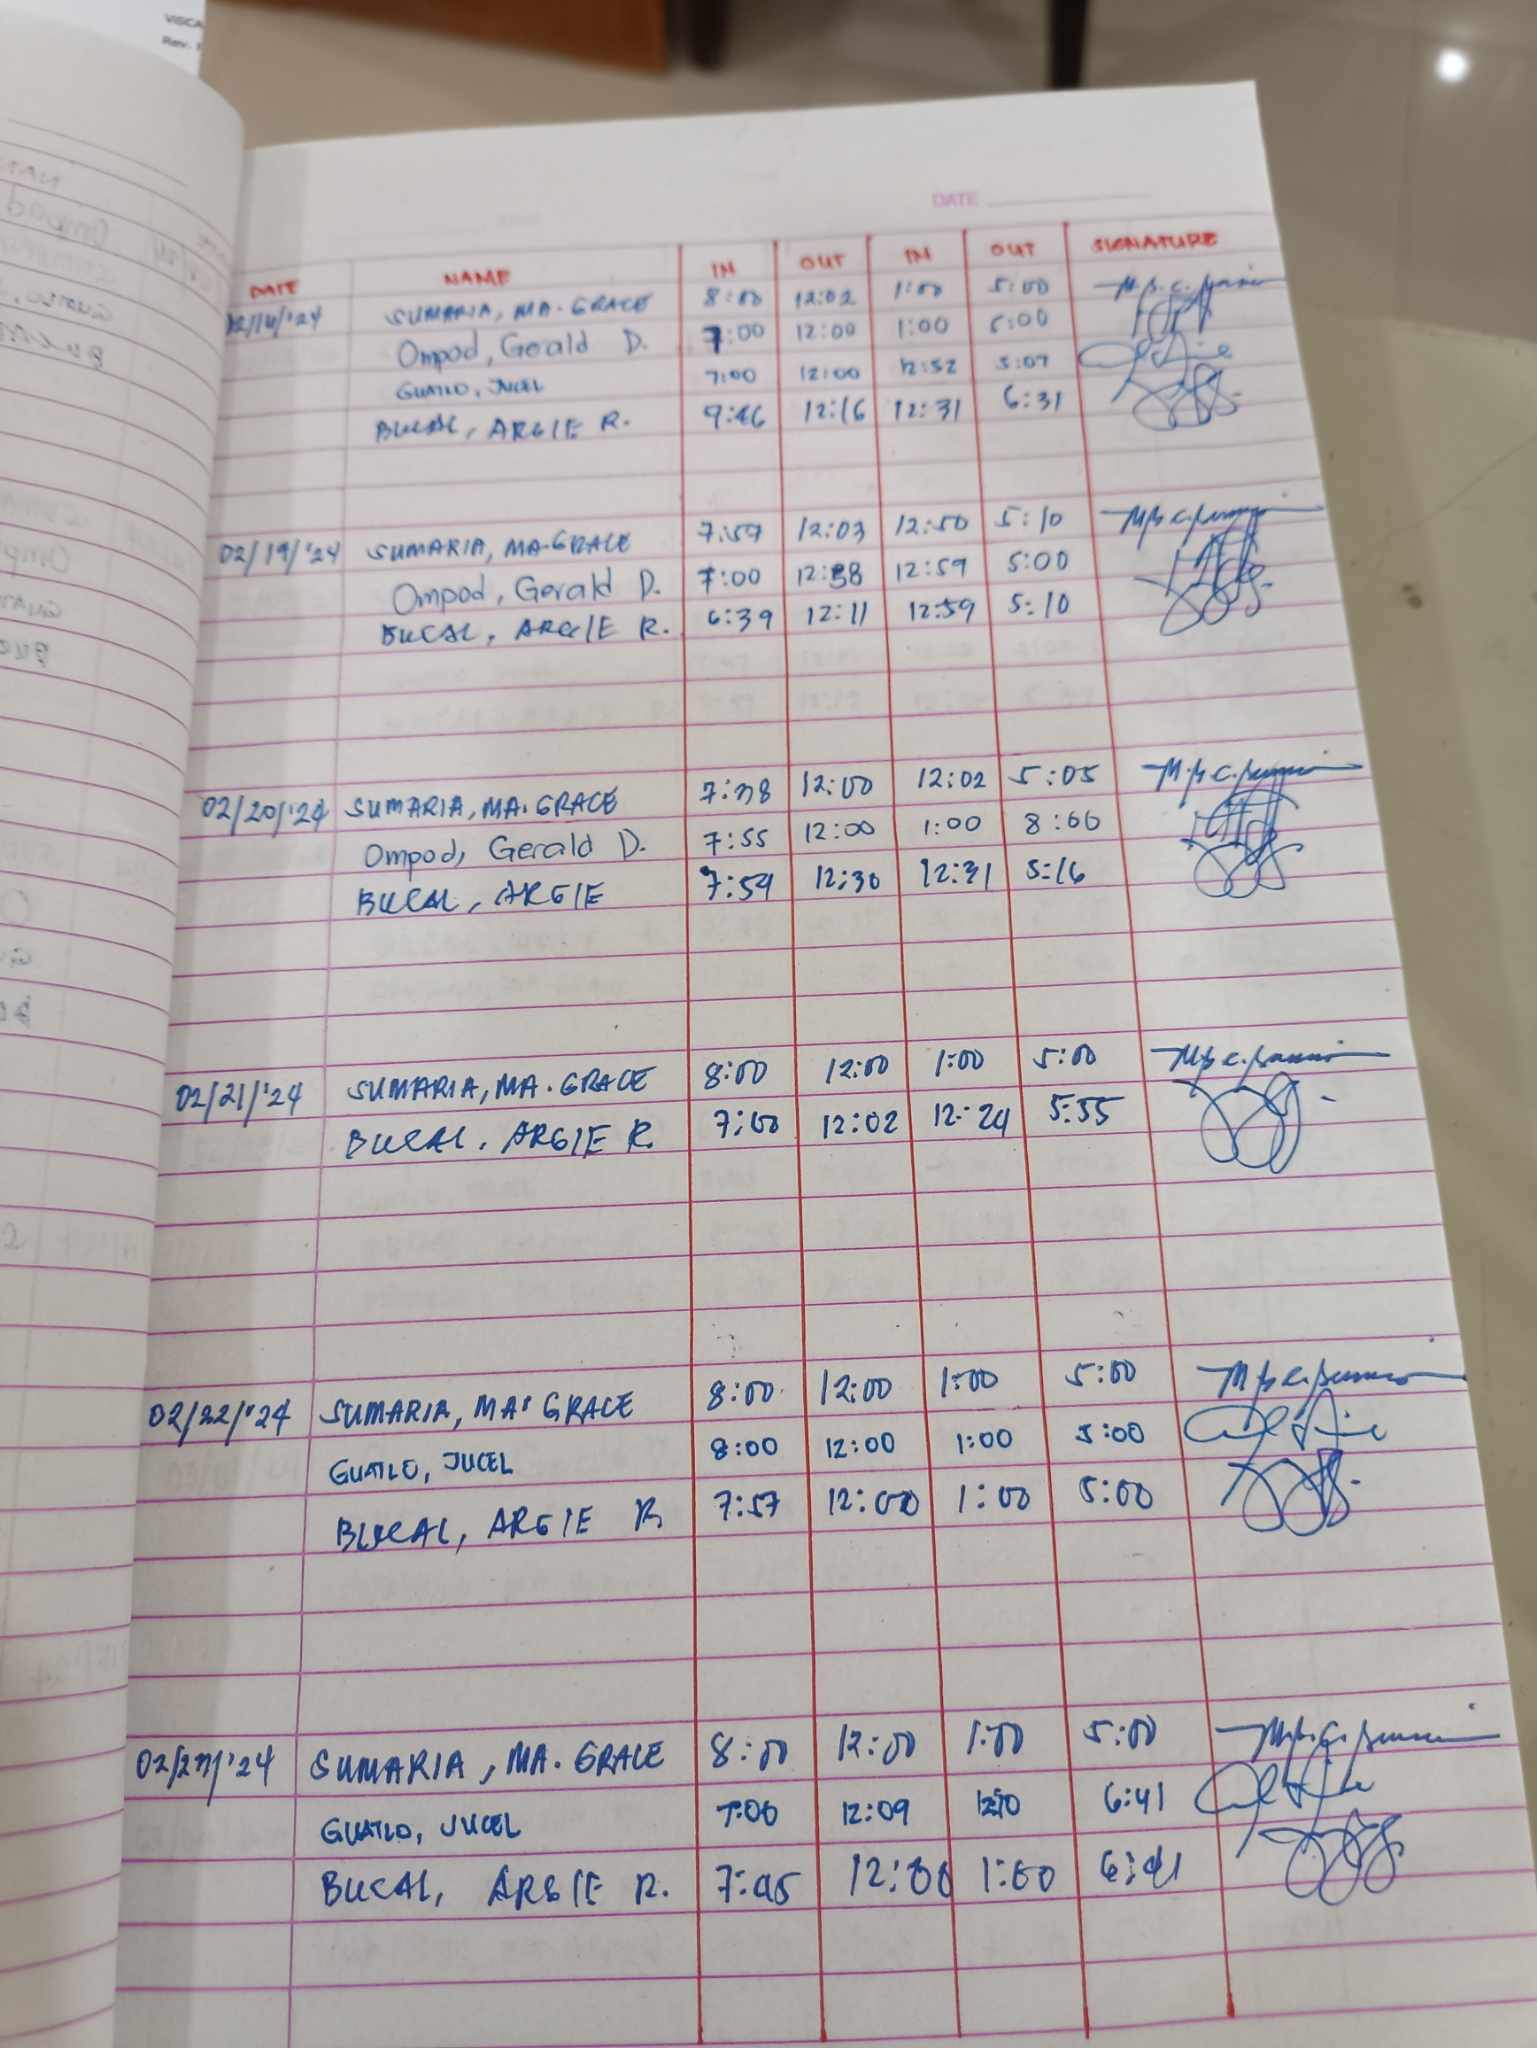 VISCA
Rev.
DATE
DATE NAME IN OUT IN OUT SIGNATURE
SUMARIA, MA. GRACE 8:00 12:02 1:00 5:00
Ompod, Gerald D. 7:00 12:00 1:00 5:00
GUATLO, JUCEL 7:00 12:00 12:52 5:07
BUCAL, ARGIE R. 9:46 12:16 12:31 6:31
02/19/'24 SUMARIA, MA. GRACE 7:57 12:03 12:50 5:10
Ompod, Gerald D. 7:00 12:58 12:59 5:00
BUCAL, ARGIE R. 6:39 12:11 12:59 5:10
02/20/'24 SUMARIA, MA. GRACE 7:38 12:00 12:02 5:05
Ompod, Gerald D. 7:55 12:00 1:00 8:00
BUCAL, ARGIE 7:59 12:30 12:31 5:16
02/21/'24 SUMARIA, MA. GRACE 8:00 12:00 1:00 5:00
BUCAL, ARGIE R. 7:00 12:02 12:24 5:55
02/22/'24 SUMARIA, MA. GRACE 8:00 12:00 1:00 5:00
GUATLO, JUCEL 8:00 12:00 1:00 5:00
BUCAL, ARGIE R. 7:57 12:00 1:00 5:00
02/27/'24 SUMARIA, MA. GRACE 8:00 12:00 1:00 5:00
GUATLO, JUCEL 7:00 12:09 12:10 6:41
BUCAL, ARGIE R. 7:45 12:00 1:00 6:41